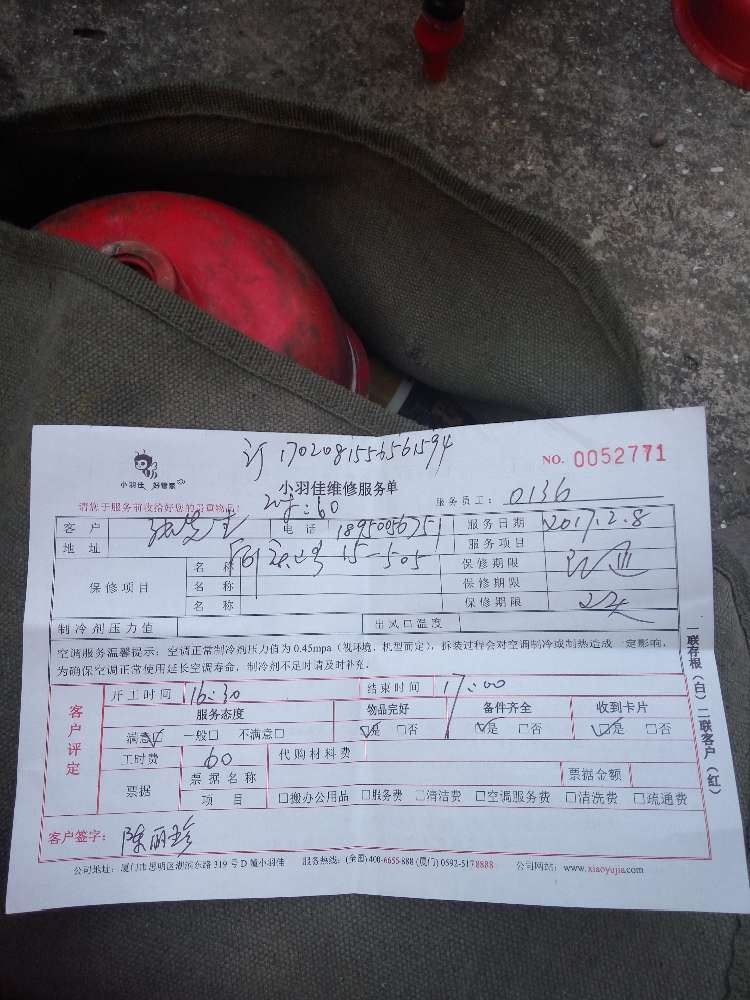 订 1702081556561594
NO. 0052771
小羽佳 好管家
小羽佳维修服务单
服务员工： 0136
请您于服务前收拾好您的贵重物品：
：60
客户 张先生 电话 18950056751 服务日期 2017.2.8
地址 15-505 服务项目
保修项目 名称 保修期限
名称 保修期限
名称 保修期限
制冷剂压力值 出风口温度
空调服务温馨提示：空调正常制冷剂压力值为 0.45mpa（视环境、机型而定），拆装过程会对空调制冷或制热造成一定影响，
为确保空调正常使用延长空调寿命，制冷剂不足时请及时补充。
客户评定
开工时间 16:30 结束时间 17:00
服务态度 物品完好 备件齐全 收到卡片
满意☑ 一般□ 不满意□ ☑是 □否 ☑是 □否 ☑是 □否
工时费 60 代购材料费
票据 票据名称 票据金额
项目 □搬办公用品 □服务费 □清洁费 □空调服务费 □清洗费 □疏通费
客户签字： 陈丽珍
公司地址：厦门市思明区湖滨东路 319 号 D 幢小羽佳 服务热线：(全国) 400-6655-888 (厦门) 0592-5178888 公司网站：www.xiaoyujia.com
一联存根（白）二联客户（红）